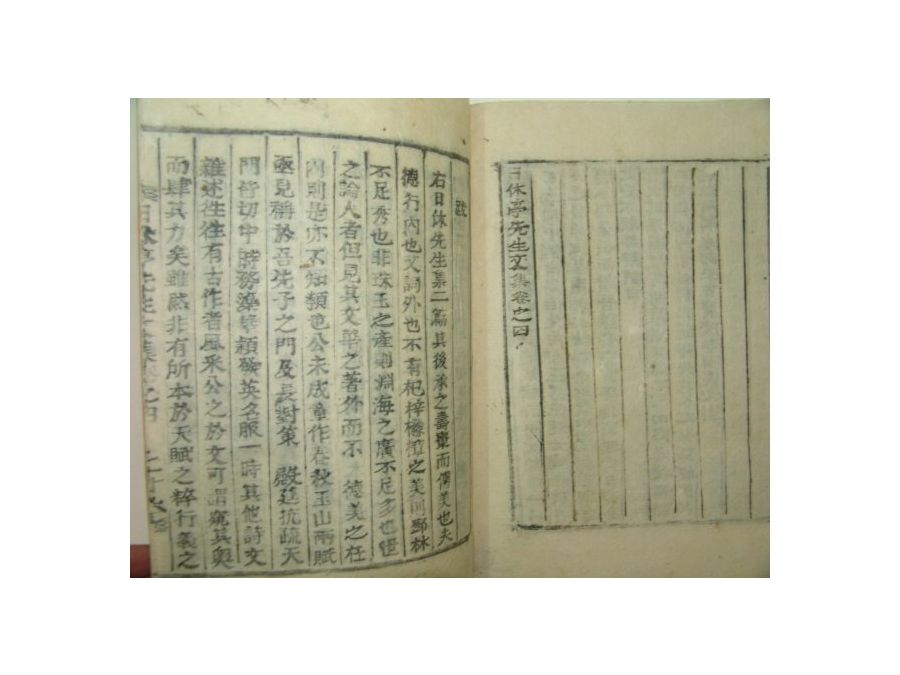 日休亭先生文集卷之四
跋
右日休先生集二篇其後承之壽棗而傳美也夫
德行內也文詞外也不有杞梓樟之美則鄧林
不足秀也非珠玉之產則淵海之廣不足多也世
之論人者但見其文華之著外而不德美之在
內則是亦不知類也公未成童作春秋玉山兩賦
亟見稱於吾先子之門及長對策 殿廷抗疏天
門皆切中時務藻華穎發英名服一時其他詩文
雜述往往有古作者風采公之於文可謂窺其奧
而肆其力矣雖然非有所本於天賦之粹行義之
日休亭先生文集卷之四